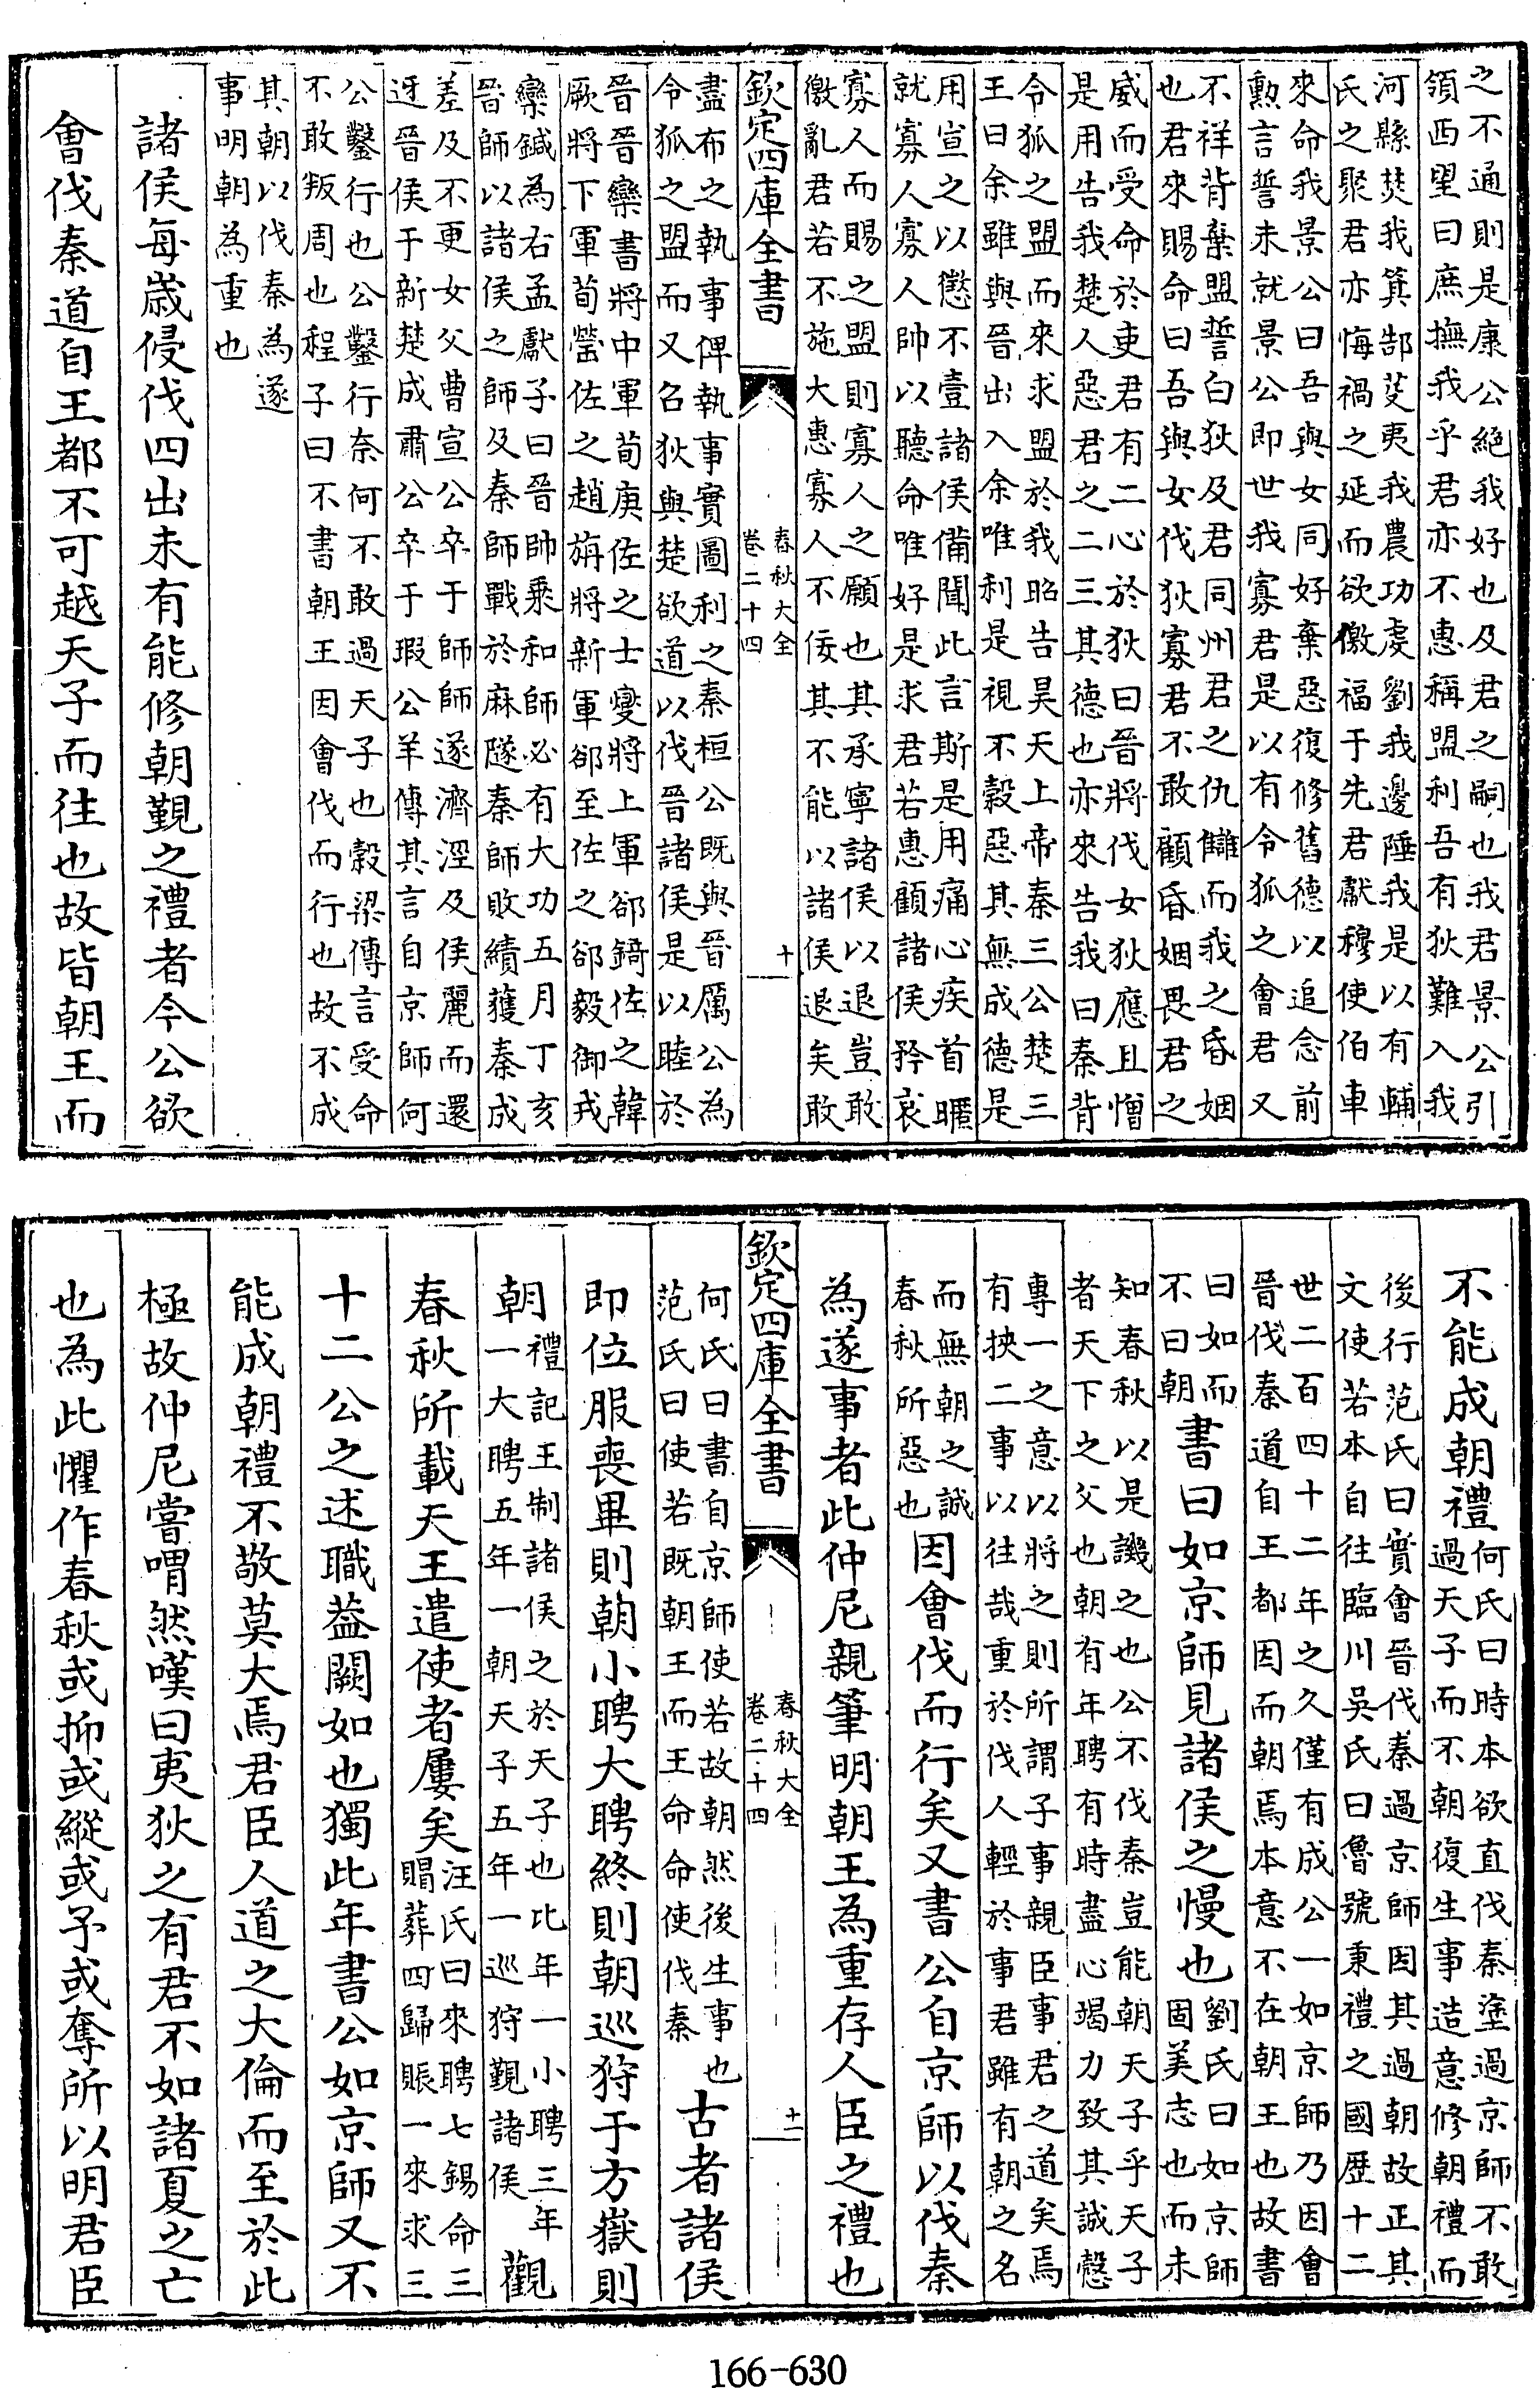 之不通則是康公絕我好也及君之嗣也我君景公引
領西望曰庶撫我乎君亦不惠稱盟利吾有狄難入我
河縣焚我箕郜芟夷我農功虔劉我邊陲我是以有輔
氏之聚君亦悔禍之延而欲徼福于先君獻穆使伯車
來命我景公曰吾與女同好棄惡復修舊德以追念前
勲言誓未就景公即世我寡君是以有令狐之會君又
不祥背棄盟誓白狄及君同州君之仇讎而我之昏姻
也君來賜命曰吾與女伐狄寡君不敢顧昏姻畏君之
威而受命於吏君有二心於狄曰晉將伐女狄應且憎
是用告我楚人惡君之二三其德也亦來告我曰秦背
令狐之盟而來求盟於我昭告昊天上帝秦三公楚三
王曰余雖與晉出入余唯利是視不榖惡其無成德是
用宣之以懲不壹諸侯備聞此言斯是用痛心疾首暱
就寡人寡人帥以聽命唯好是求君若惠顧諸侯矜哀
寡人而賜之盟則寡人之願也其承寧諸侯以退豈敢
徼亂君若不施大惠寡人不佞其不能以諸侯退矣敢
欽定四庫全書
春秋大全
卷二十四
十
盡布之執事俾執事實圖利之秦桓公既與晉厲公為
令狐之盟而又召狄與楚欲道以伐晉諸侯是以睦於
晉晉欒書將中軍荀庚佐之士燮將上軍郤錡佐之韓
厥將下軍荀罃佐之趙旃將新軍郤至佐之郤毅御戎
欒鍼為右孟獻子曰晉帥乘和師必有大功五月丁亥
晉師以諸侯之師及秦師戰於麻隧秦師敗績獲秦成
差及不更女父曹宣公卒于師師遂濟涇及侯麗而還
迓晉侯于新楚成肅公卒于瑕公羊傳其言自京師何
公鑿行也公鑿行奈何不敢過天子也榖梁傳言受命
不敢叛周也程子曰不書朝王因會伐而行也故不成
其朝以伐秦為遂
事明朝為重也
諸侯每歲侵伐四出未有能修朝覲之禮者今公欲
會伐秦道自王都不可越天子而往也故皆朝王而
不能成朝禮
何氏曰時本欲直伐秦塗過京師不敢
過天子而不朝復生事造意修朝禮而
後行范氏曰實會晉伐秦過京師因其過朝故正其
文使若本自往臨川吳氏曰魯號秉禮之國歷十二
世二百四十二年之久僅有成公一如京師乃因會
晉伐秦道自王都因而朝焉本意不在朝王也故書
曰如而
不曰朝
書曰如京師見諸侯之慢也
劉氏曰如京師
固美志也而未
知春秋以是譏之也公不伐秦豈能朝天子乎天子
者天下之父也朝有年聘有時盡心竭力致其誠慤
專一之意以將之則所謂子事親臣事君之道矣焉
有挾二事以往哉重於伐人輕於事君雖有朝之名
而無朝之誠
春秋所惡也
因會伐而行矣又書公自京師以伐秦
為遂事者此仲尼親筆明朝王為重存人臣之禮也
欽定四庫全書
春秋大全
卷二十四
十一
何氏曰書自京師使若故朝然後生事也
范氏曰使若既朝王而王命命使伐秦
古者諸侯
即位服喪畢則朝小聘大聘終則朝巡狩于方嶽則
朝
禮記王制諸侯之於天子也比年一小聘三年
一大聘五年一朝天子五年一巡狩覲諸侯
觀
春秋所載天王遣使者屢矣
汪氏曰來聘七錫命三
賵葬四歸賑一來求三
十二公之述職蓋闕如也獨此年書公如京師又不
能成朝禮不敬莫大焉君臣人道之大倫而至於此
極故仲尼嘗喟然嘆曰夷狄之有君不如諸夏之亡
也為此懼作春秋或抑或縱或予或奪所以明君臣
166-630